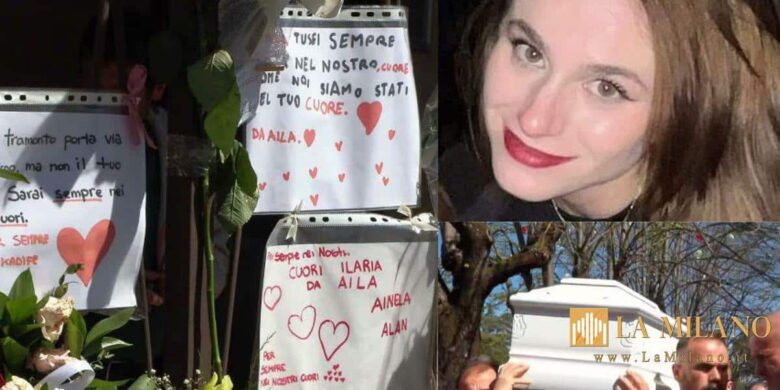 TU SEI SEMPRE
NEL NOSTRO CUORE
COME NOI SIAMO STATI
NEL TUO CUORE.
DA AILA.
tramonto porta via
ma non il tuo
Sarai sempre nei
cuori.
PER SEMPRE
sempre nei Nostri
CUORI ILARIA
DA AILA
AINELA
ALAN
PER
SEMPRE
NEI NOSTRI CUORI
LA MILANO
www.LaMilano.it